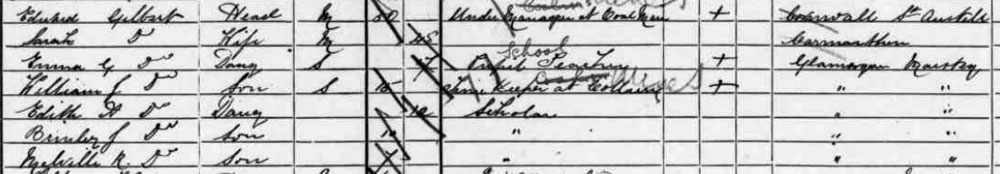 Edward Gilbert Head M 50 Under Manager at Coal Mine + Cornwall St Austell
Sarah Do Wife M 45 Carmarthen
Emma G Do Daug S 17 School Pupil Teacher + Glamorgan Maesteg
William J Do Son S 15 Time Keeper at Colliery Mines + " "
Edith A Do Daug 12 Scholar " "
Brinley J Do Son 10 " " "
Melville R. Do Son " " "